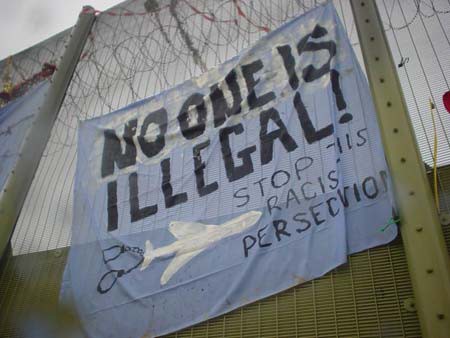 NO ONE IS
ILLEGAL!
STOP THIS
RACIST
PERSECUTION